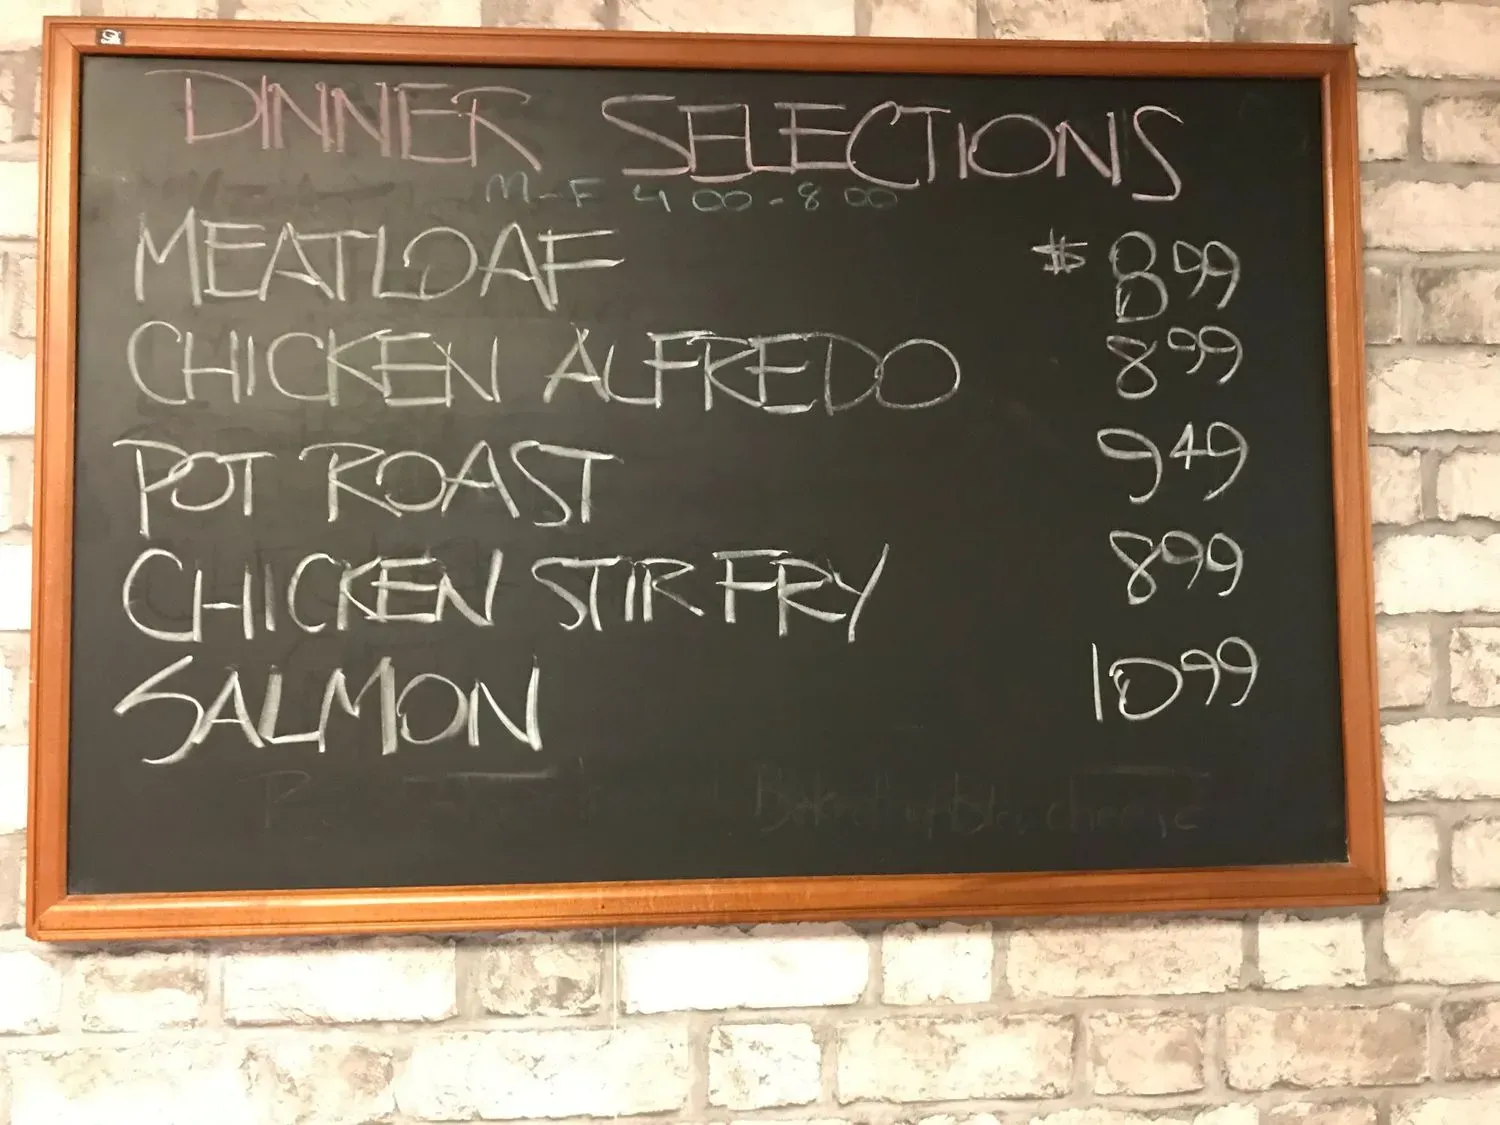 DINNER SELECTIONS
M-F 4 00 - 8 00
MEATLOAF $ 8 99
CHICKEN ALFREDO 8 99
POT ROAST 9 49
CHICKEN STIR FRY 8 99
SALMON 10 99